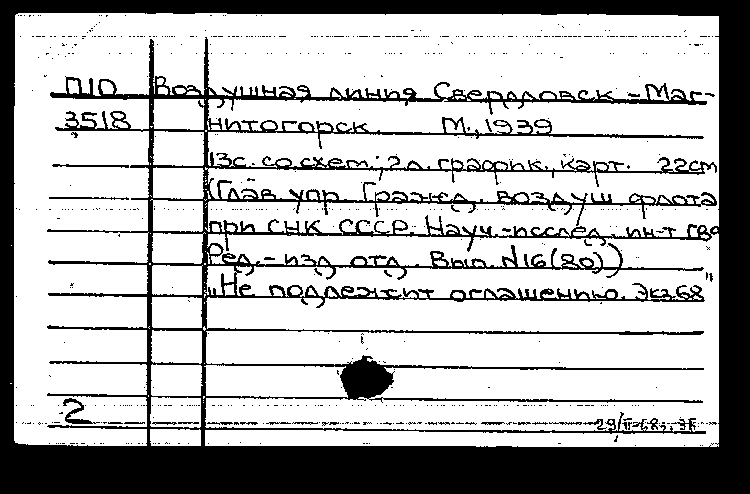 П10 Воздушная линия Свердловск - Маг-
3518 нитогорск. М., 1939
13с. со схем.; 2 л. график., карт. 22см
(Глав. упр. Гражд. воздуш. флота
при СНК СССР. Науч.-исслед. ин-т ГВФ
Ред.-изд. отд. Вып. №16(80))
„Не подлежит оглашению. Экз.68"
2